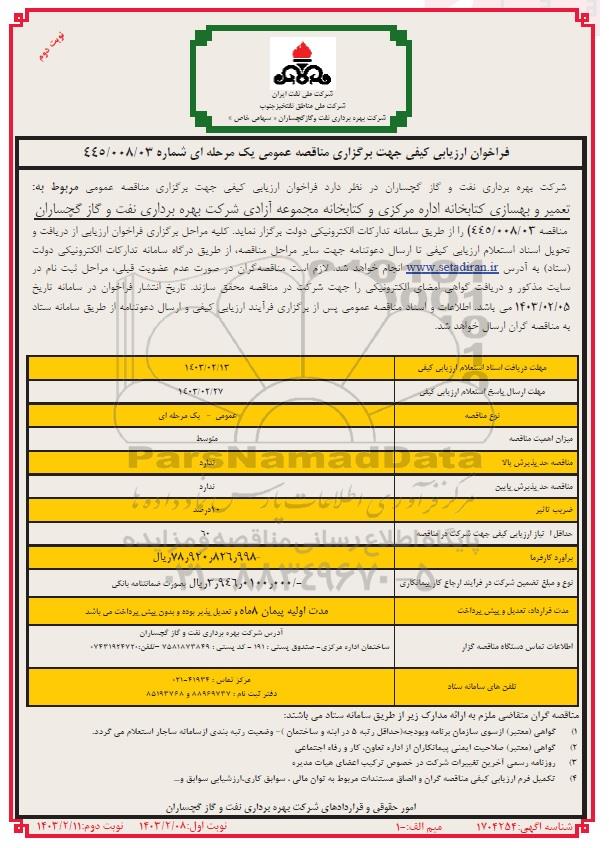 نوبت دوم
شرکت ملی نفت ایران
شرکت ملی مناطق نفتخیز جنوب
شرکت بهره برداری نفت و گاز گچساران « سهامی خاص »
فراخوان ارزیابی کیفی جهت برگزاری مناقصه عمومی یک مرحله ای شماره ۴٤٥/۰۰۸/۰۳
شرکت بهره برداری نفت و گاز گچساران در نظر دارد فراخوان ارزیابی کیفی جهت برگزاری مناقصه عمومی مربوط به:
تعمیر و بهسازی کتابخانه اداره مرکزی و کتابخانه مجموعه آزادی شرکت بهره برداری نفت و گاز گچساران
مناقصه ۴٤٥/۰۰۸/۰۳) را از طریق سامانه تدارکات الکترونیکی دولت برگزار نماید. کلیه مراحل برگزاری فراخوان ارزیابی از دریافت و
تحویل اسناد استعلام ارزیابی کیفی تا ارسال دعوتنامه جهت سایر مراحل مناقصه، از طریق درگاه سامانه تدارکات الکترونیکی دولت
(ستاد) به آدرس www.setadiran.ir انجام خواهد شد. لازم است مناقصه‌گران در صورت عدم عضویت قبلی، مراحل ثبت نام در
سایت مذکور و دریافت گواهی امضای الکترونیکی را جهت شرکت در مناقصه محقق سازند. تاریخ انتشار فراخوان در سامانه تاریخ
۱۴۰۳/۰۲/۰۵ می باشد. اطلاعات و اسناد مناقصه عمومی پس از برگزاری فرآیند ارزیابی کیفی و ارسال دعوتنامه از طریق سامانه ستاد
به مناقصه گران ارسال خواهد شد.
مهلت دریافت اسناد استعلام ارزیابی کیفی ۱۴۰۳/۰۲/۱۳
مهلت ارسال پاسخ استعلام ارزیابی کیفی ۱۴۰۳/۰۲/۲۷
نوع مناقصه عمومی - یک مرحله ای
میزان اهمیت مناقصه متوسط
مناقصه حد پذیرش بالا ندارد
مناقصه حد پذیرش پایین ندارد
ضریب تاثیر ۱۰درصد
حداقل ا تیاز ارزیابی کیفی جهت شرکت در مناقصه ۶۰
برآورد کارفرما ۷۸٫۹۲۰٫۸۲۶٫۹۹۸-ریال
نوع و مبلغ تضمین شرکت در فرایند ارجاع کار پیمانکاری ۳٫۹۴۶٫۰۱۰۰٫۰۰۰/-ریال بصورت ضمانتنامه بانکی
مدت قرارداد، تعدیل و پیش پرداخت مدت اولیه پیمان ۸ماه و تعدیل پذیر بوده و بدون پیش پرداخت می باشد
اطلاعات تماس دستگاه مناقصه گزار آدرس شرکت بهره برداری نفت و گاز گچساران
ساختمان اداره مرکزی- صندوق پستی : ۱۹۱ - کد پستی : ۷۵۸۱۸۷۳۸۴۹ -تلفن:۰۷۴۳۱۹۲۴۷۲۰
تلفن های سامانه ستاد مرکز تماس : ۴۱۹۳۴-۰۲۱
دفتر ثبت نام : ۸۸۹۶۹۷۳۷ و ۸۵۱۹۳۷۶۸
مناقصه گران متقاضی ملزم به ارائه مدارک زیر از طریق سامانه ستاد می باشند:
۱) گواهی (معتبر) ازسوی سازمان برنامه وبودجه(حداقل رتبه ۵ در ابنه و ساختمان )– وضعیت رتبه بندی ازسامانه ساجار استعلام می گردد.
۲) گواهی (معتبر) صلاحیت ایمنی پیمانکاران از اداره تعاون، کار و رفاه اجتماعی
۳) روزنامه رسمی آخرین تغییرات شرکت در خصوص ترکیب اعضای هیات مدیره
۴) تکمیل فرم ارزیابی کیفی مناقصه گران و الصاق مستندات مربوط به توان مالی ، سوابق کاری،ارزشیابی سوابق و...
امور حقوقی و قراردادهای شرکت بهره برداری نفت و گاز گچساران
شناسه آگهی:۱۷۰۴۲۵۴ میم الف:-۱ نوبت اول:۱۴۰۳/۲/۰۸ نوبت دوم:۱۴۰۳/۲/۱۱
ParsNamadData
مرکز فرآوری اطلاعات پارس نماد داده ها
پایگاه اطلاع رسانی مناقصه و مزایده
۰۲۱-۸۸۳۴۹۶۷۰-۵